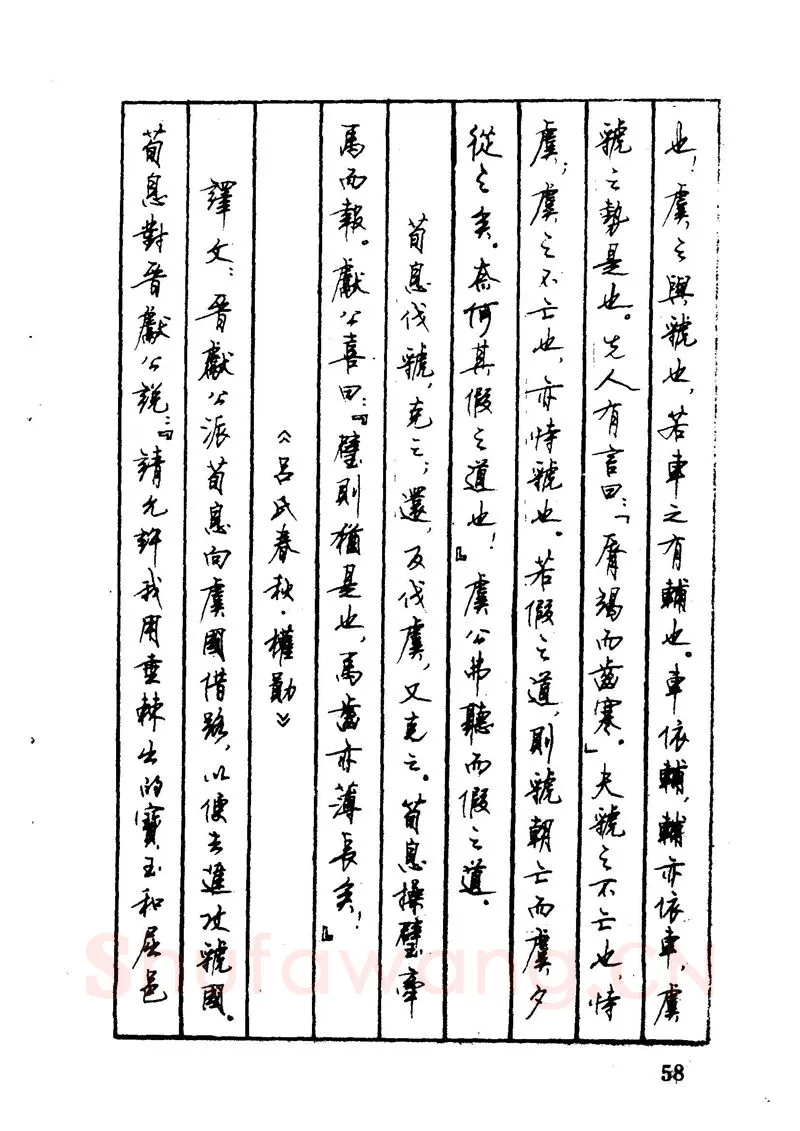 也！虞之與虢也，若車之有輔也。車依輔，輔亦依車，虞
虢之勢是也。先人有言曰：「脣竭而齒寒」。夫虢之不亡也，恃
虞；虞之不亡也，亦恃虢也。若假之道，則虢朝亡而虞夕
從之矣。奈何其假之道也！』虞公弗聽而假之道。
荀息伐虢，克之；還，反伐虞，又克之。荀息操璧牽
馬而報。獻公喜曰：『璧則猶是也，馬齒亦薄長矣！』
《呂氏春秋·權勛》
譯文：晉獻公派荀息向虞國借路，以便去進攻虢國。
荀息對晉獻公説：『請允許我用垂棘出的寶玉和屈邑
58
Shufawang.CN